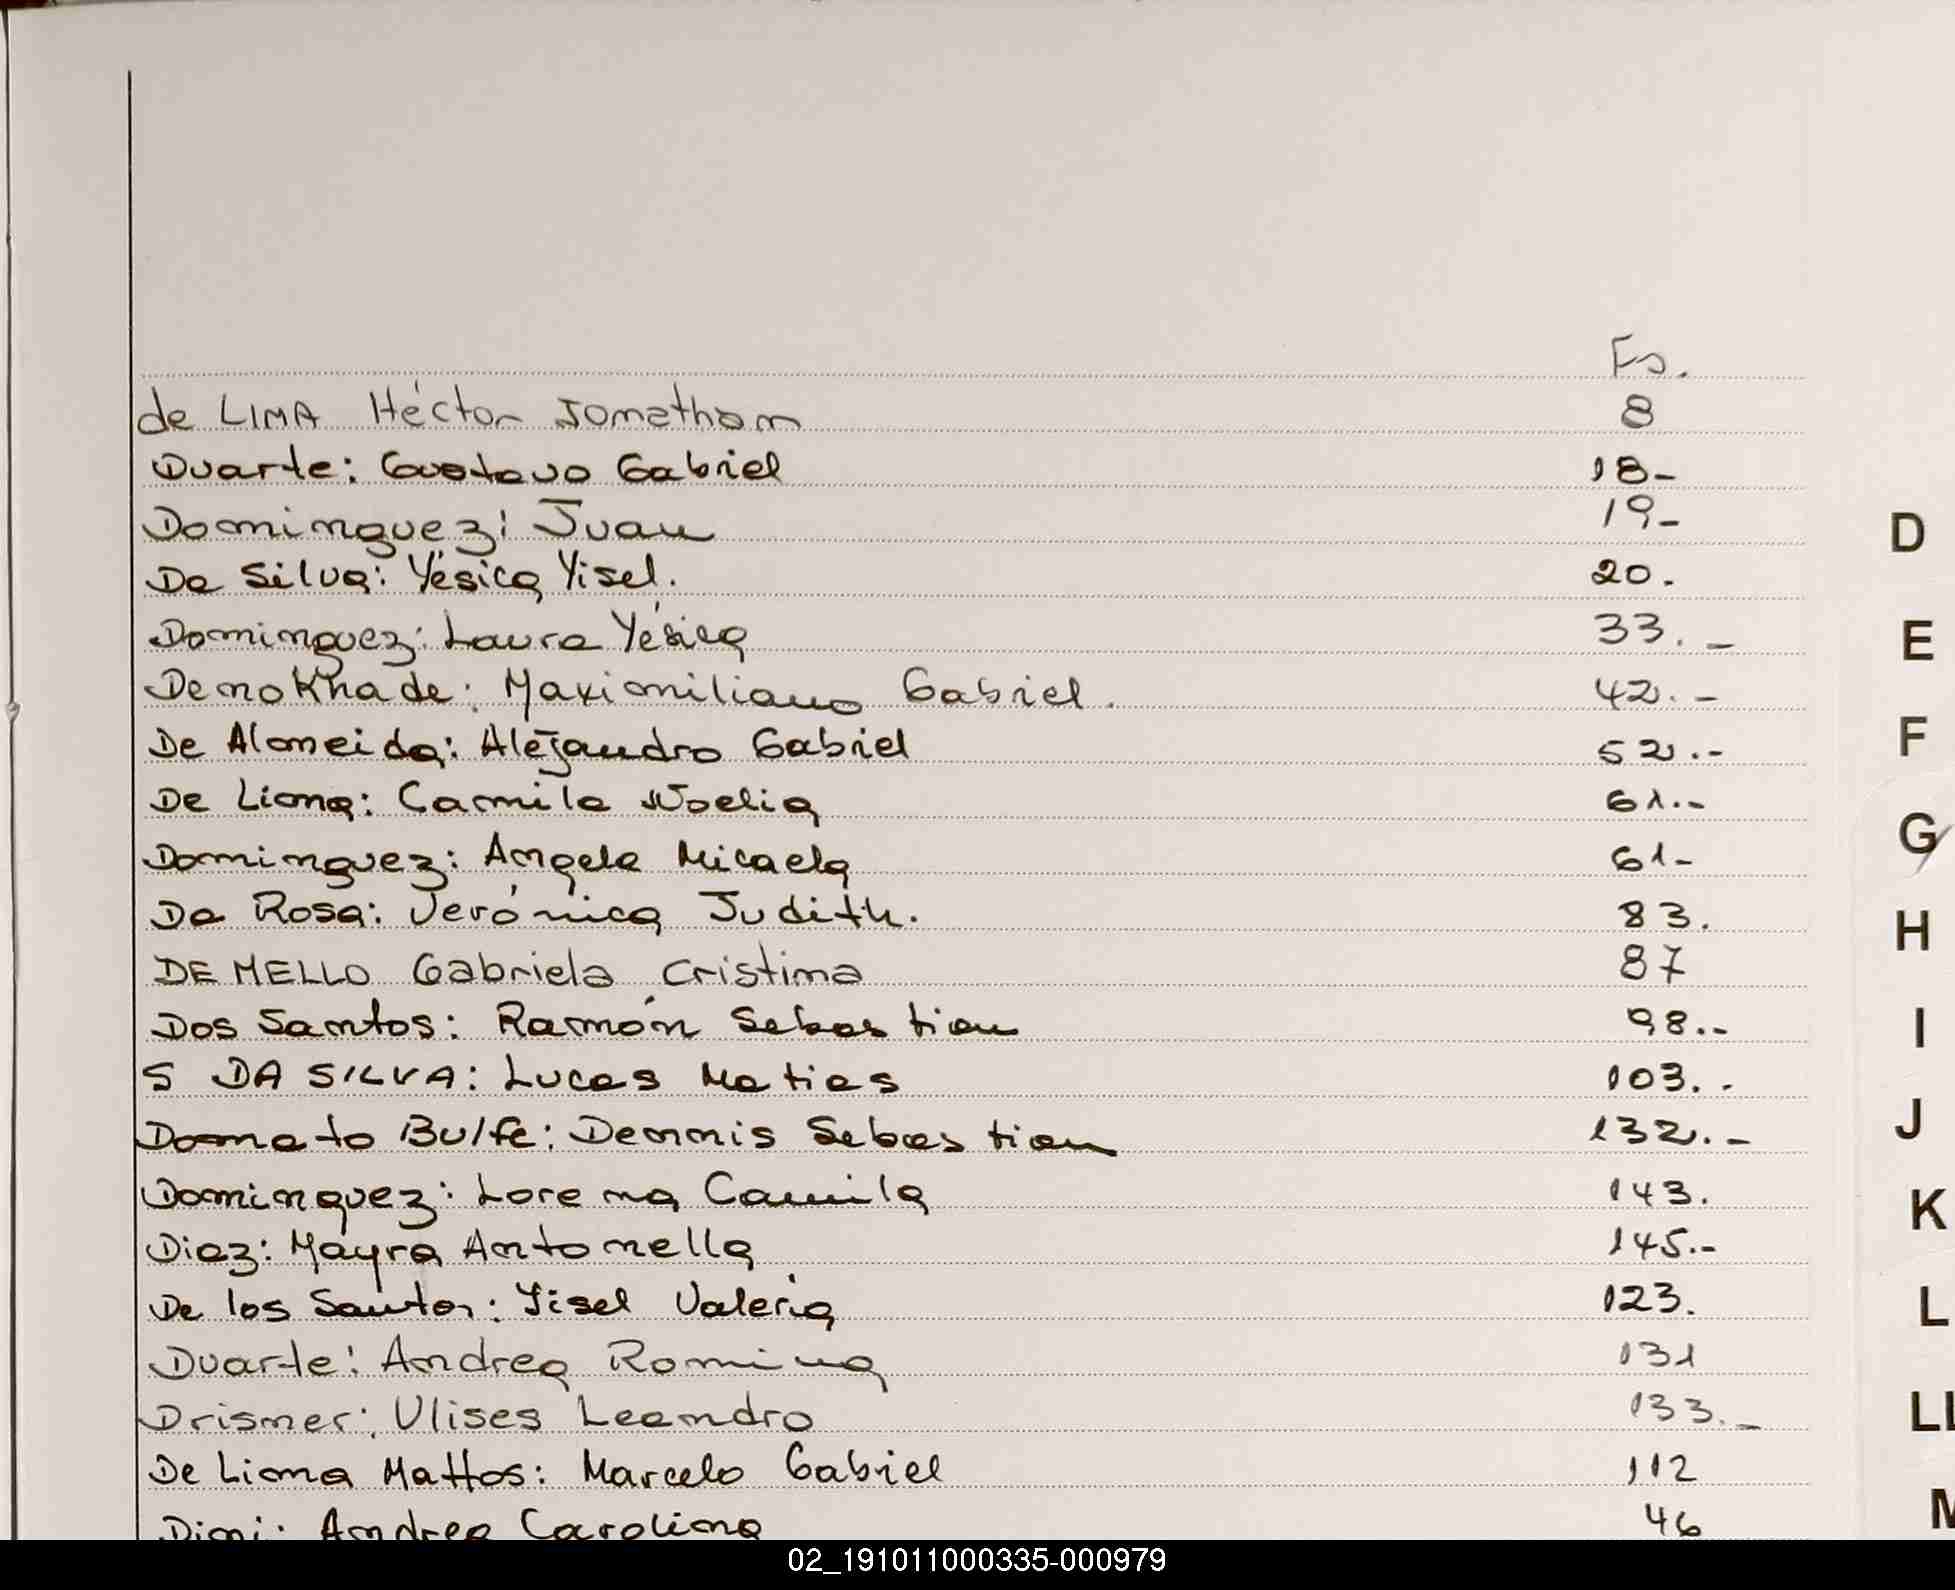 Fs.
de LIMA Héctor Jonathan 8
Duarte: Gustavo Gabriel 18-
Dominguez: Juan 19-
Da Silva: Yésica Yisel. 20.
Dominguez: Laura Yésica 33.-
Denokhade: Maximiliano Gabriel. 42.-
De Almeida: Alejandro Gabriel 52.-
De Lima: Camila Noelia 61.-
Dominguez: Angela Micaela 61-
Da Rosa: Verónica Judith. 83.
DE MELLO Gabriela Cristina 87
Dos Santos: Ramón Sebastian 98.-
S DA SILVA: Lucas Matias 103.-
Donato Bulfe: Dennis Sebastian 132.-
Dominguez: Lorena Camila 143.
Diaz: Mayra Antonella 145.-
De los Santos: Yisel Valeria 123.
Duarte: Andrea Romina 131
Drismer: Ulises Leandro 133.-
De Lima Mattos: Marcelo Gabriel 112
Andrea Carolina 46
D
E
F
G
H
I
J
K
L
LL
M
02_191011000335-000979